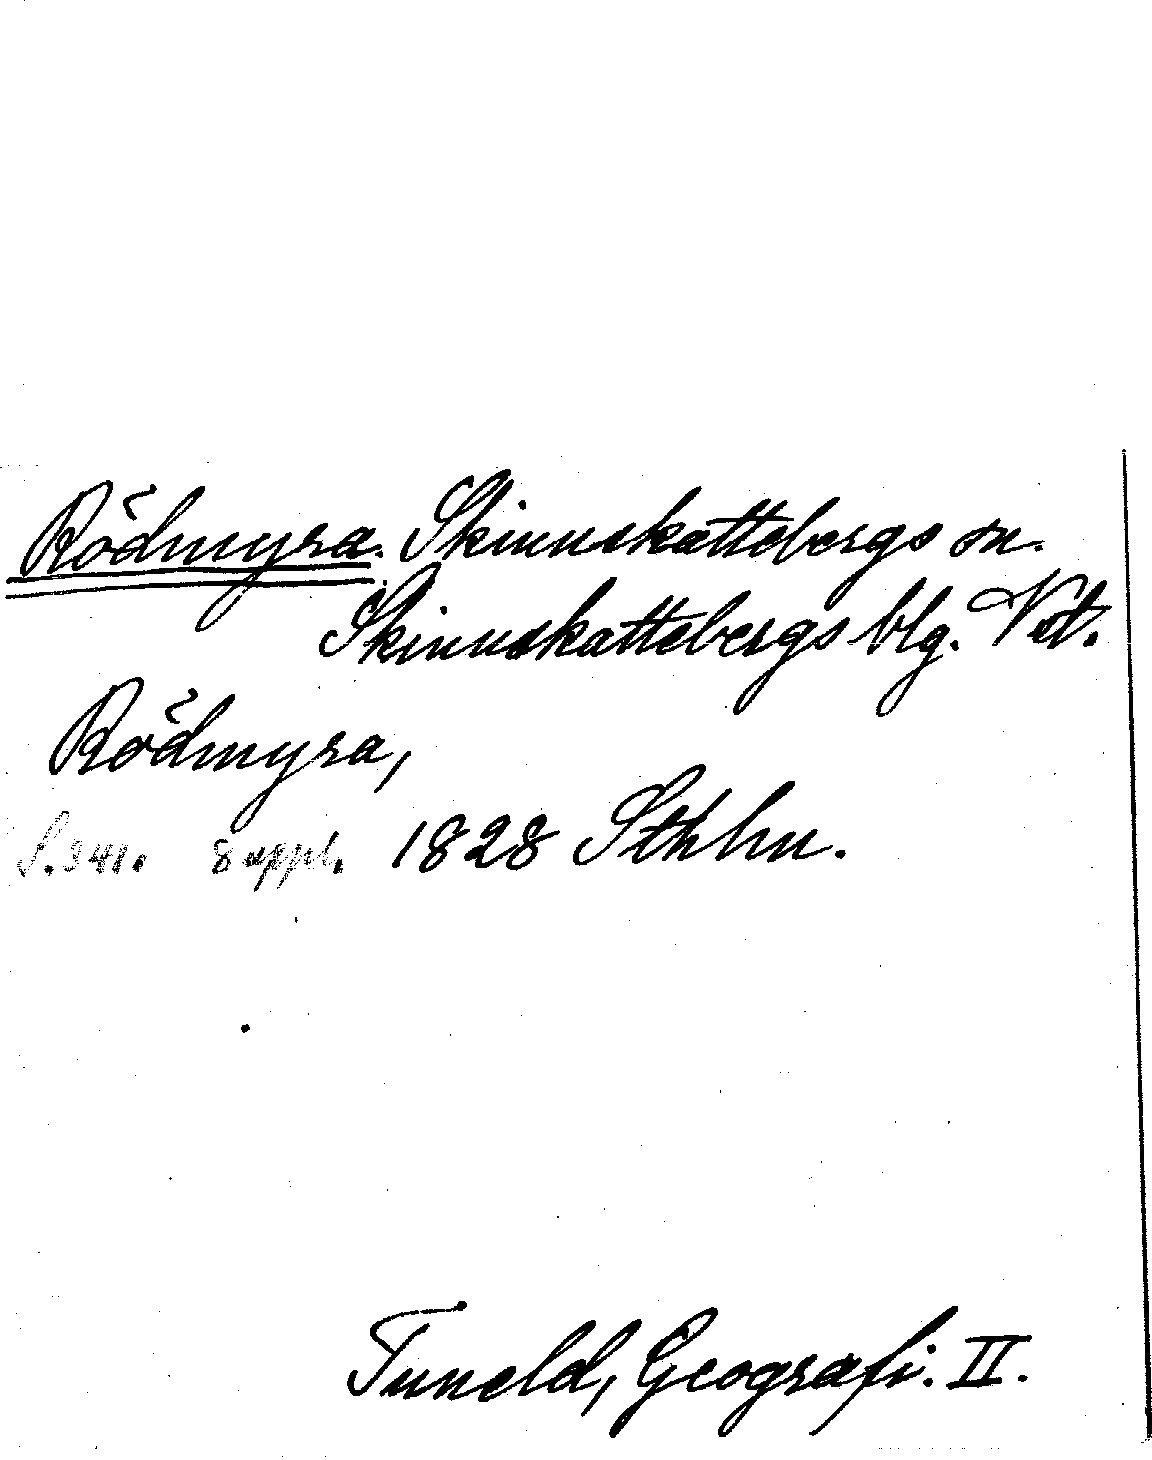 Rödmyra. Skinnskattebergs sn.
Skinnskattebergs blg. Vstl.
Rödmyra,
S. 341. 8 uppl. 1828 Sthlm.
Tuneld, Geografi. II.